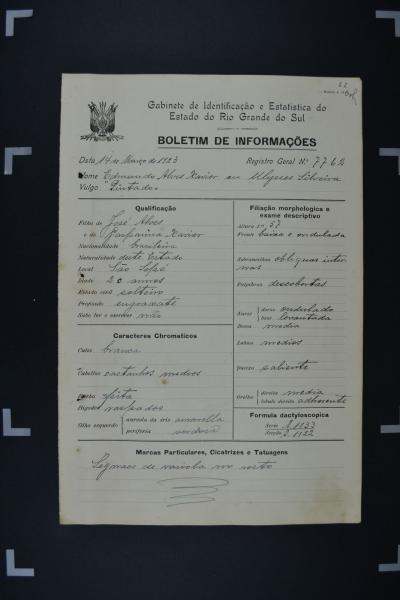 62
Gabinete de Identificação e Estatistica do
Estado do Rio Grande do Sul
BOLETIM DE INFORMAÇÕES
Data 14 de Março de 1923 Registro Geral Nº 7762
Nome Edmundo Alves Xavier ou Ulysses Silveira
Vulgo "Pintado"
Qualificação
Filho de José Alves
e de Xavier
Nacionalidade brasileira
Naturalidade deste Estado
Local São Sepé
Idade 20 annos
Estado civil solteiro
Profissão engraxate
Sabe ler e escrever não
Caracteres Chromaticos
Cutis branca
Cabellos castanhos medios
Barba feita
Bigodes raspados
Olho esquerdo aureola da iris amarella
periferia verdosa
Filiação morphologica e
exame descriptivo
Altura 1m 57
Fronte baixa e ondulada
Sobrancelhas obliquas inter
nas
Palpebras descobertas
Nariz dorso ondulado
base levantada
Bocca media
Labios medios
Queixo saliente
Orelha direita media
lobulo direito adherente
Formula dactyloscopica
Serie A. 1133
Secção 2. 1122
Marcas Particulares, Cicatrizes e Tatuagens
Signaes de variola no rosto